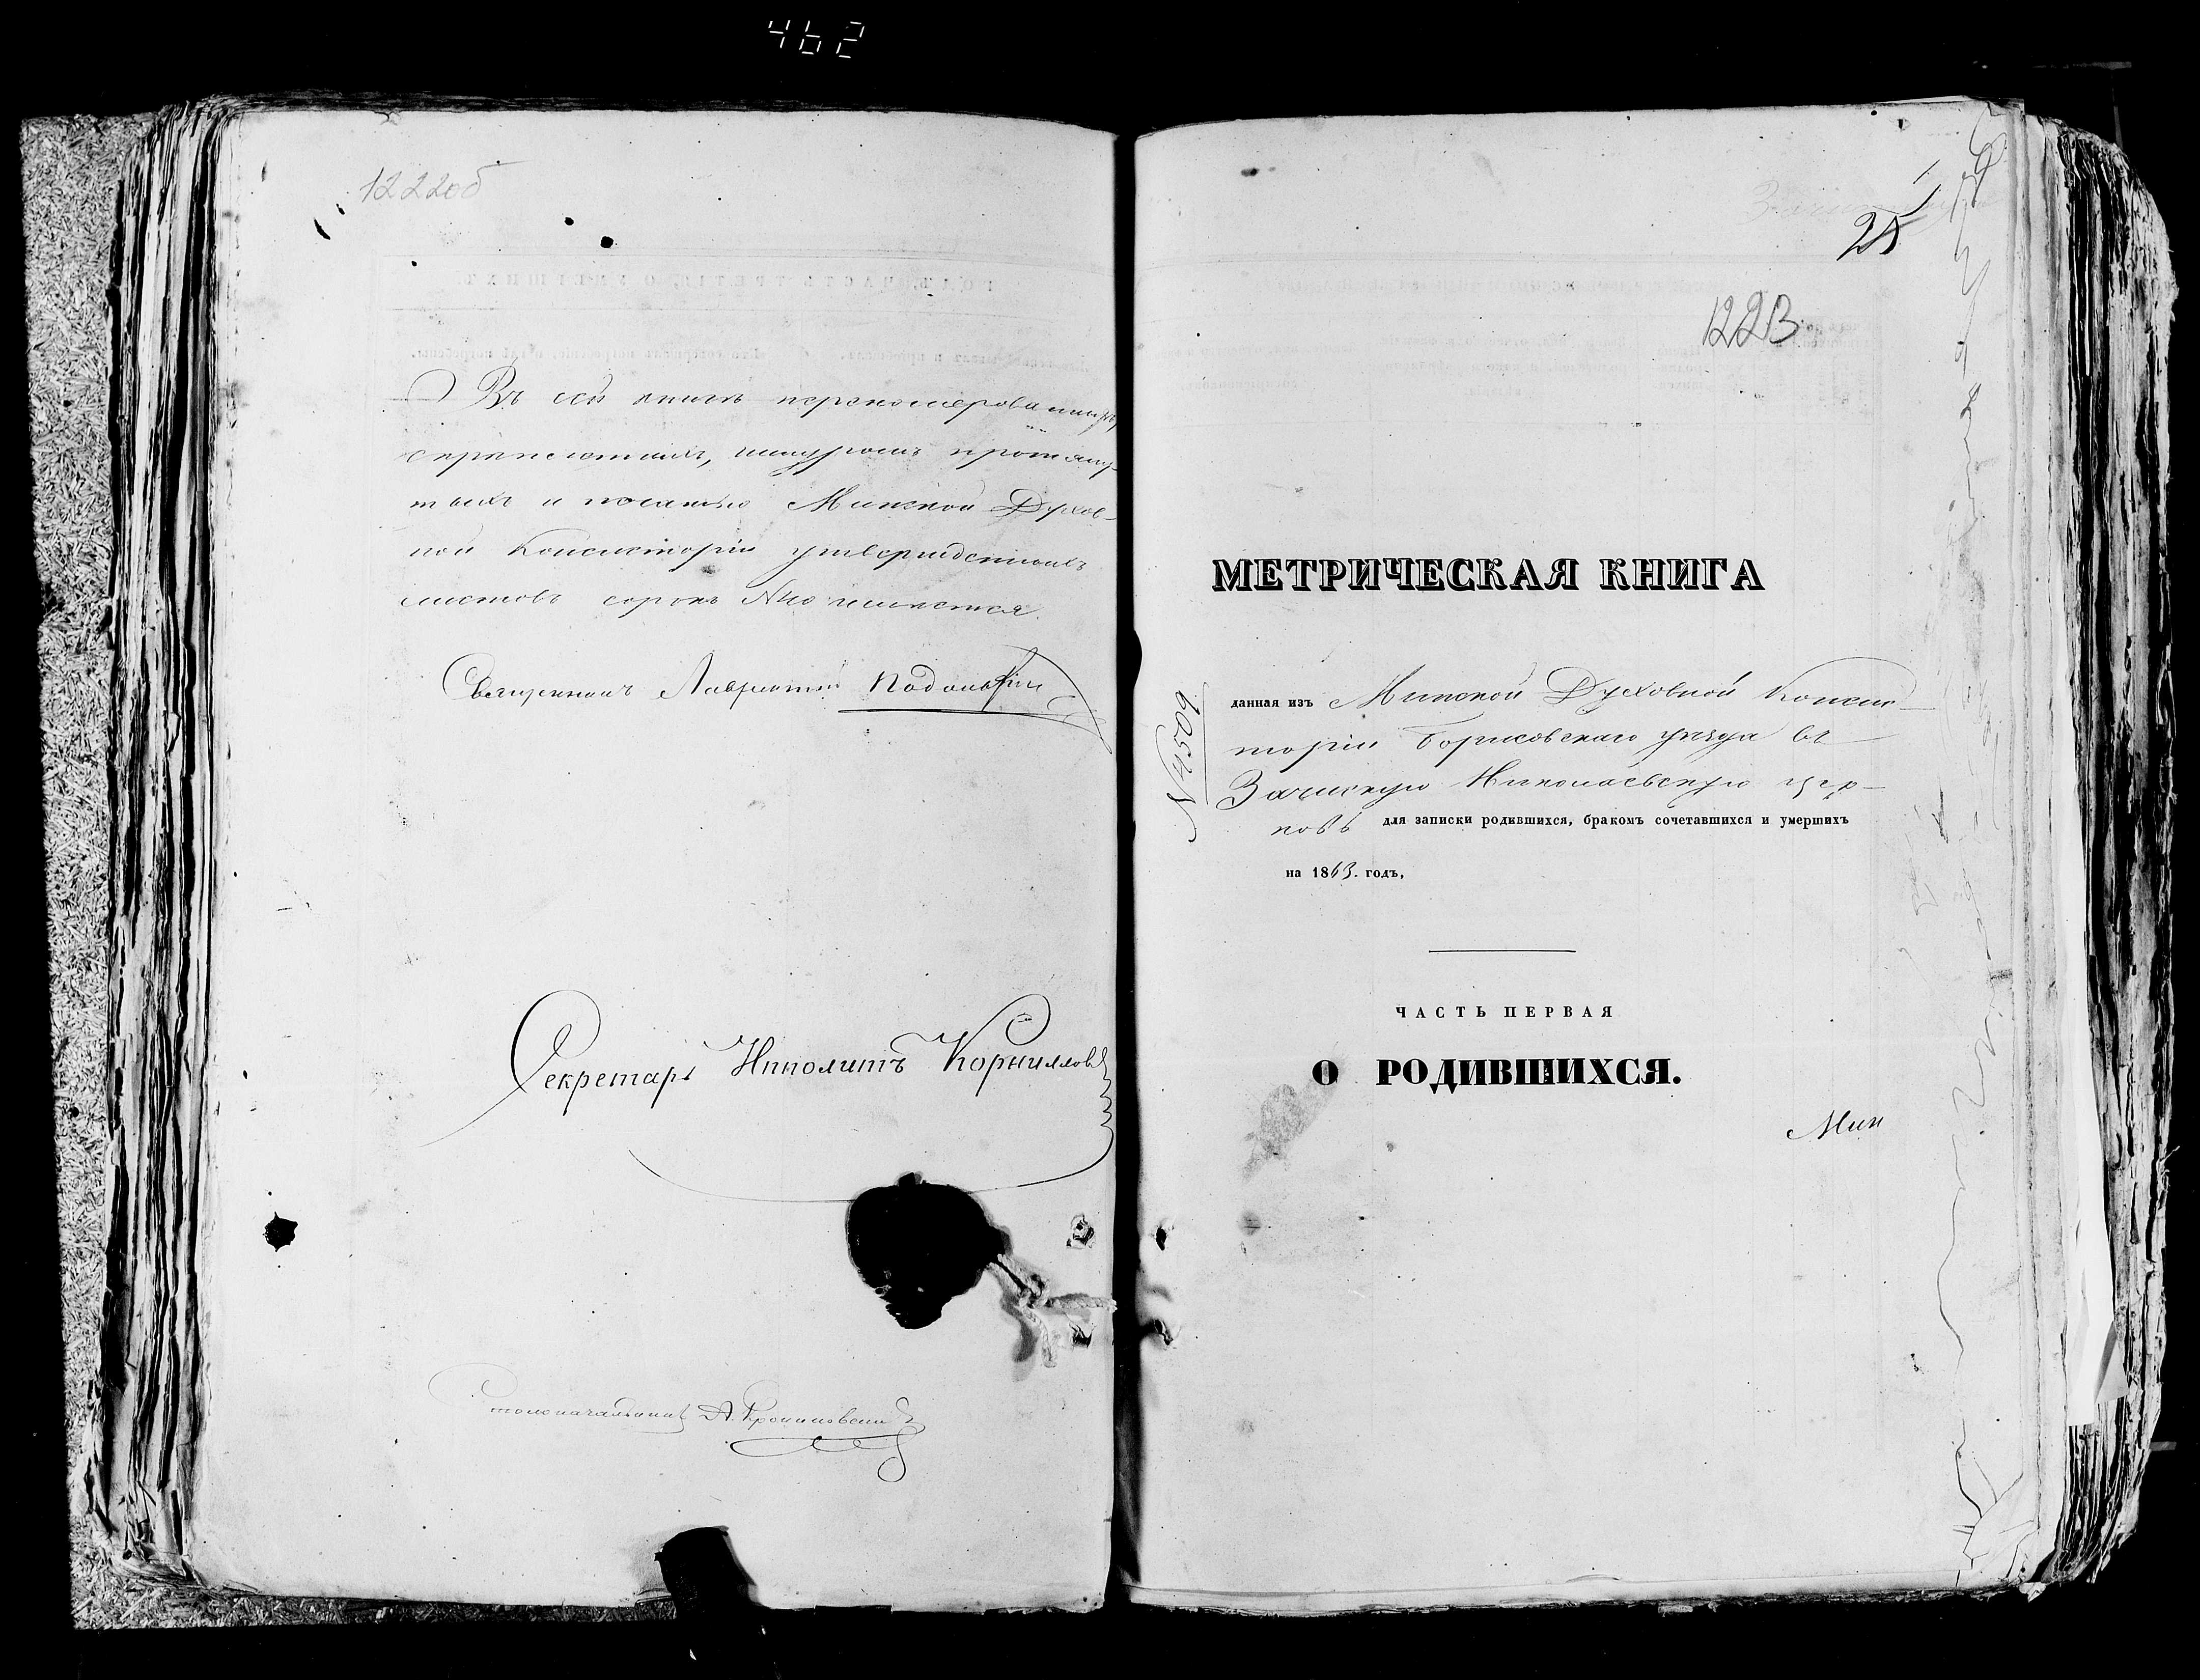 462
1222об
Въ сей книгѣ перенумерованныхъ,
скрѣпленныхъ, шнуромъ протяну-
тыхъ и печатью Минской Духов-
ной Консисторіи утвержденныхъ
листовъ сорокъ
Священникъ Лаврентій
Секретарь Ипполитъ Корниловъ
Столоначальникъ А.
1223
МЕТРИЧЕСКАЯ КНИГА
№ 4509
данная изъ Минской Духовной Консис-
торіи Борисовскаго уѣзда въ
Зачискую Николаевскую цер-
ковь для записки родившихся, бракомъ сочетавшихся и умершихъ
на 1863. годъ,
ЧАСТЬ ПЕРВАЯ
О РОДИВШИХСЯ.
Мин